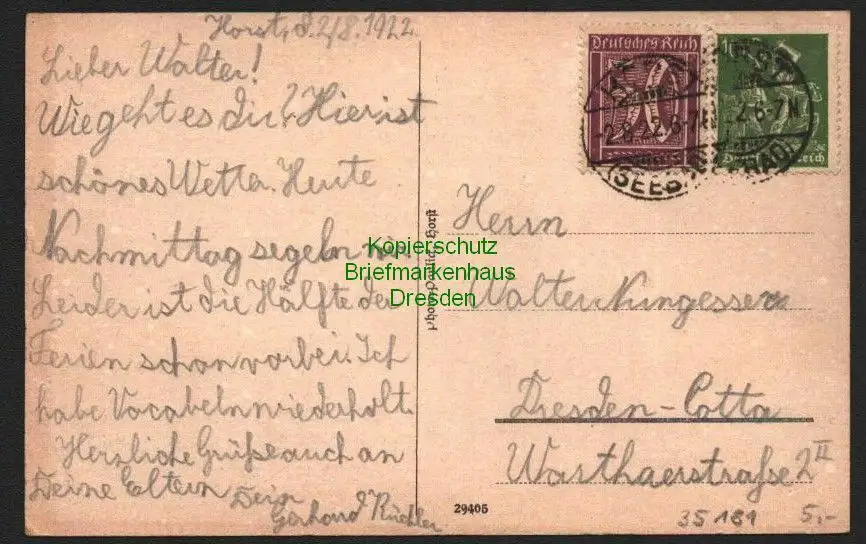 Horst, d. 2/8. 1922
Lieber Walter!
Wie geht es dir? Hier ist
schönes Wetter. Heute
Nachmittag segeln wir.
Leider ist die Hälfte der
Ferien schon vorbei. Ich
habe Vocabeln wiederholt.
Herzliche Grüße auch an
Deine Eltern Dein
Gerhard
Deutsches Reich
-2.8.22.6-7N
2.6-7N
(SEEB
BAD)
Reich
Herrn
Walter Nungesser
Dresden-Cotta
Warthaerstraße 2 II
Horst
Kopierschutz
Briefmarkenhaus
Dresden
29405
35 181 5,-